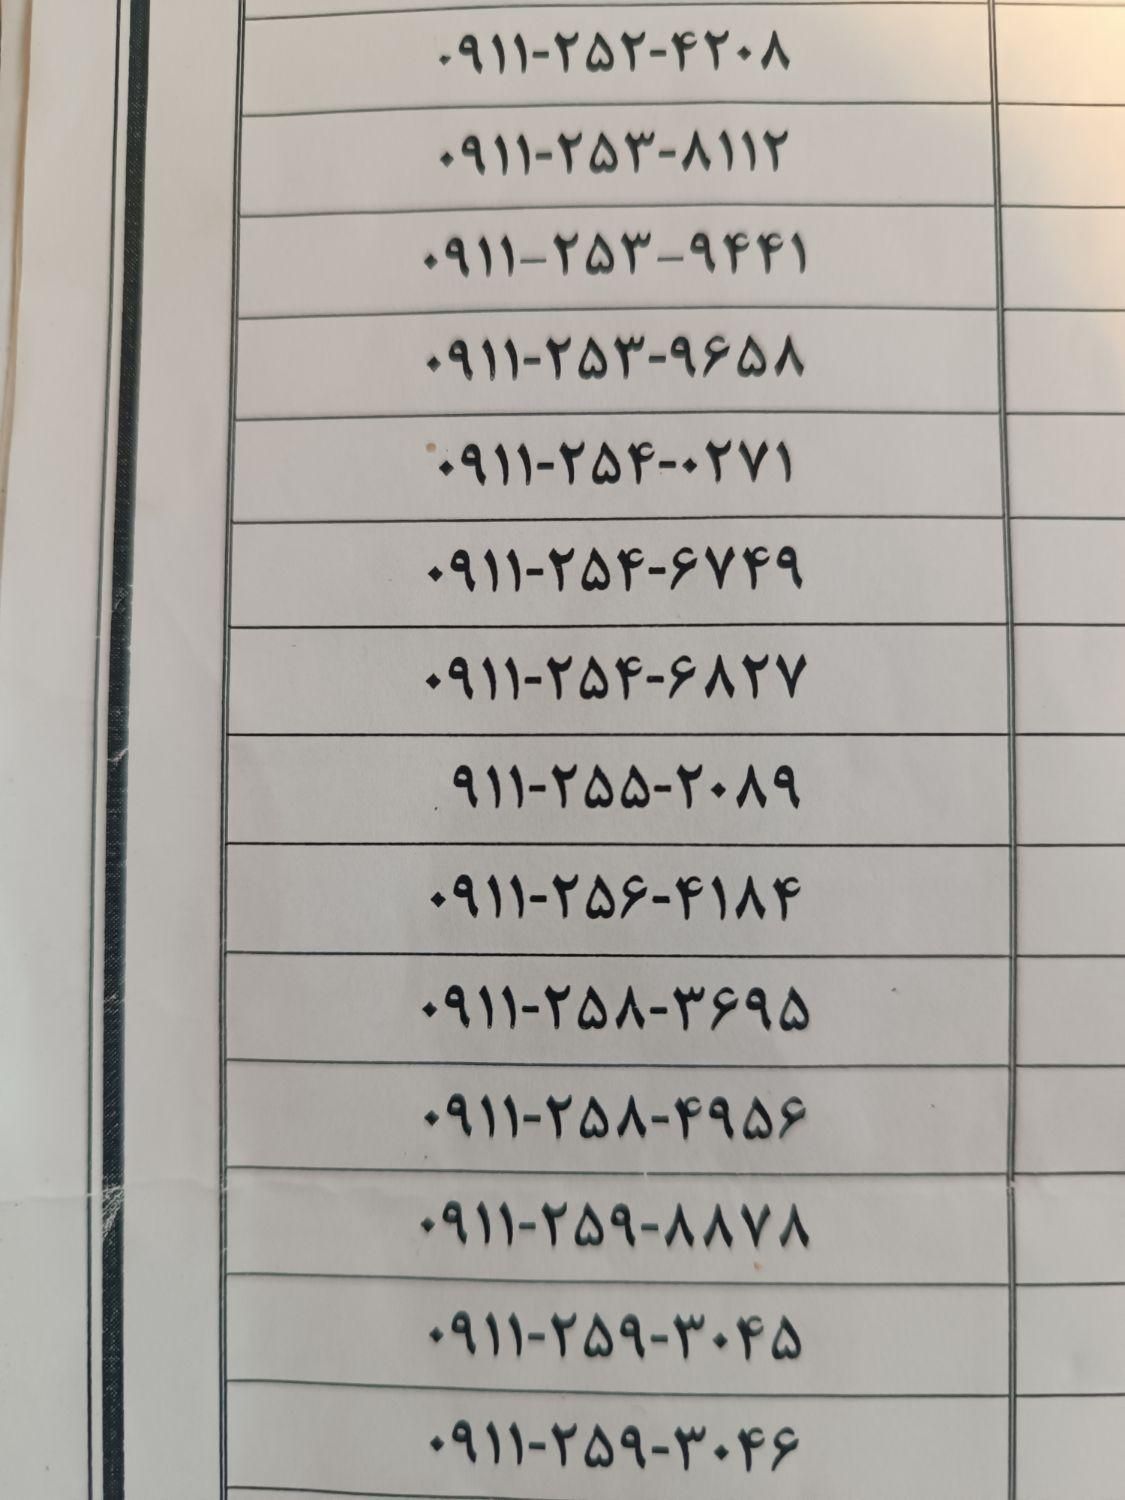 ۰۹۱۱-۲۵۲-۴۲۰۸
۰۹۱۱-۲۵۳-۸۱۱۲
۰۹۱۱-۲۵۳-۹۴۴۱
۰۹۱۱-۲۵۳-۹۶۵۸
۰۹۱۱-۲۵۴-۰۲۷۱
۰۹۱۱-۲۵۴-۶۷۴۹
۰۹۱۱-۲۵۴-۶۸۲۷
۹۱۱-۲۵۵-۲۰۸۹
۰۹۱۱-۲۵۶-۴۱۸۴
۰۹۱۱-۲۵۸-۳۶۹۵
۰۹۱۱-۲۵۸-۴۹۵۶
۰۹۱۱-۲۵۹-۸۸۷۸
۰۹۱۱-۲۵۹-۳۰۴۵
۰۹۱۱-۲۵۹-۳۰۴۶